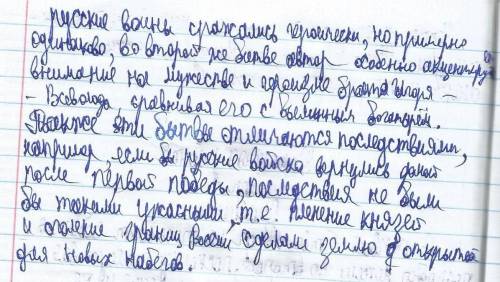 русские воины сражались героически, но примерно
одинаково, во второй же битве автор особенно акцентирует
внимание на мужестве и героизме брата Игоря –
– Всеволода, сравнивая его с былинным богатырём.
Также эти битвы отличаются последствиями,
например, если бы русские войска вернулись домой
после первой победы, последствия не были
бы такими ужасными, т.е. пленение князей
и оголение границ России, сделали землю открытой
для новых набегов.